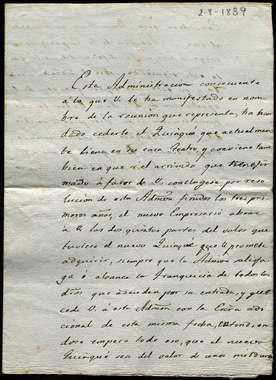 2-8-1839
Esta Administracion consecuente
a lo que V. le ha manifestado en nom
bre de la reunion que representa, ha acor
dado cederle el Quinqué que actualmen
te tiene en su casa Teatro, y conviene tam
bien en que si el arriendo que tiene fir
mado á favor de V. concluyese por reso
lucion de esta Admon finidos los tres pri
meros años, el nuevo Empresario abone
á V. las dos quintas partes del valor que
tuviere el nuevo Quinqué que V. promete
adquirir, siempre que la Admon satisfa
ga ó alcance la franquicia de todos los
dros que adeuden por su entrada, y que
cede V. á esta Admon con la Escra adi
cional de esta misma fecha, entendien
dose empero todo eso, que el nuevo
Quinqué sea del valor de una mediana